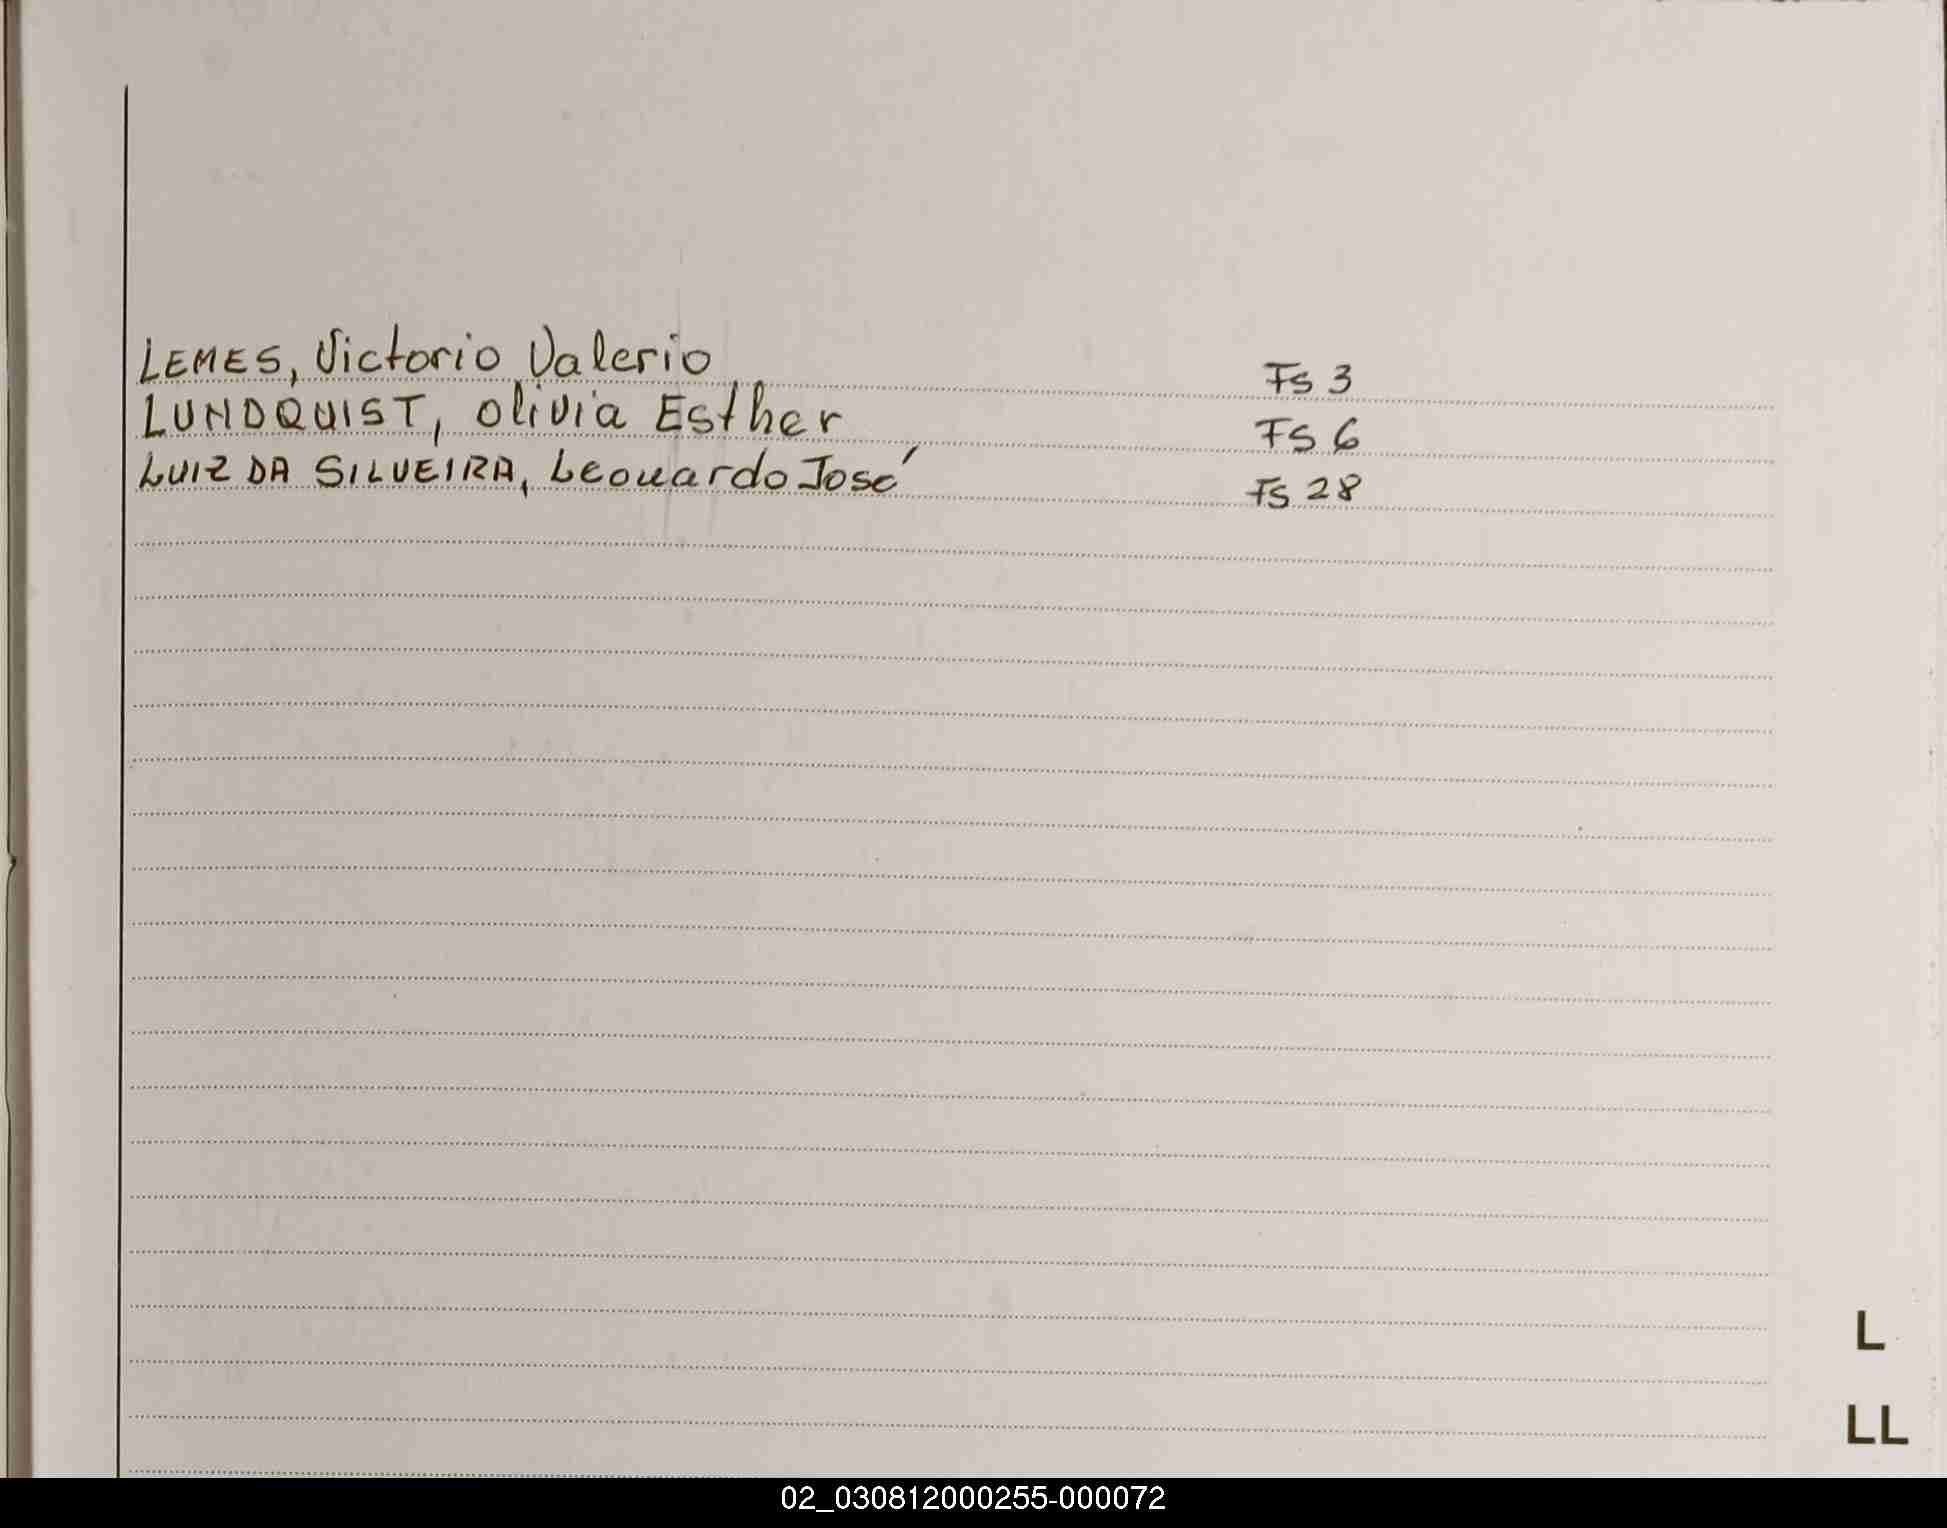 LEMES, Victorio Valerio Fs 3
LUNDQUIST, Olivia Esther Fs 6
LUIZ DA SILVEIRA, Leonardo José Fs 28
L
LL
02_030812000255-000072